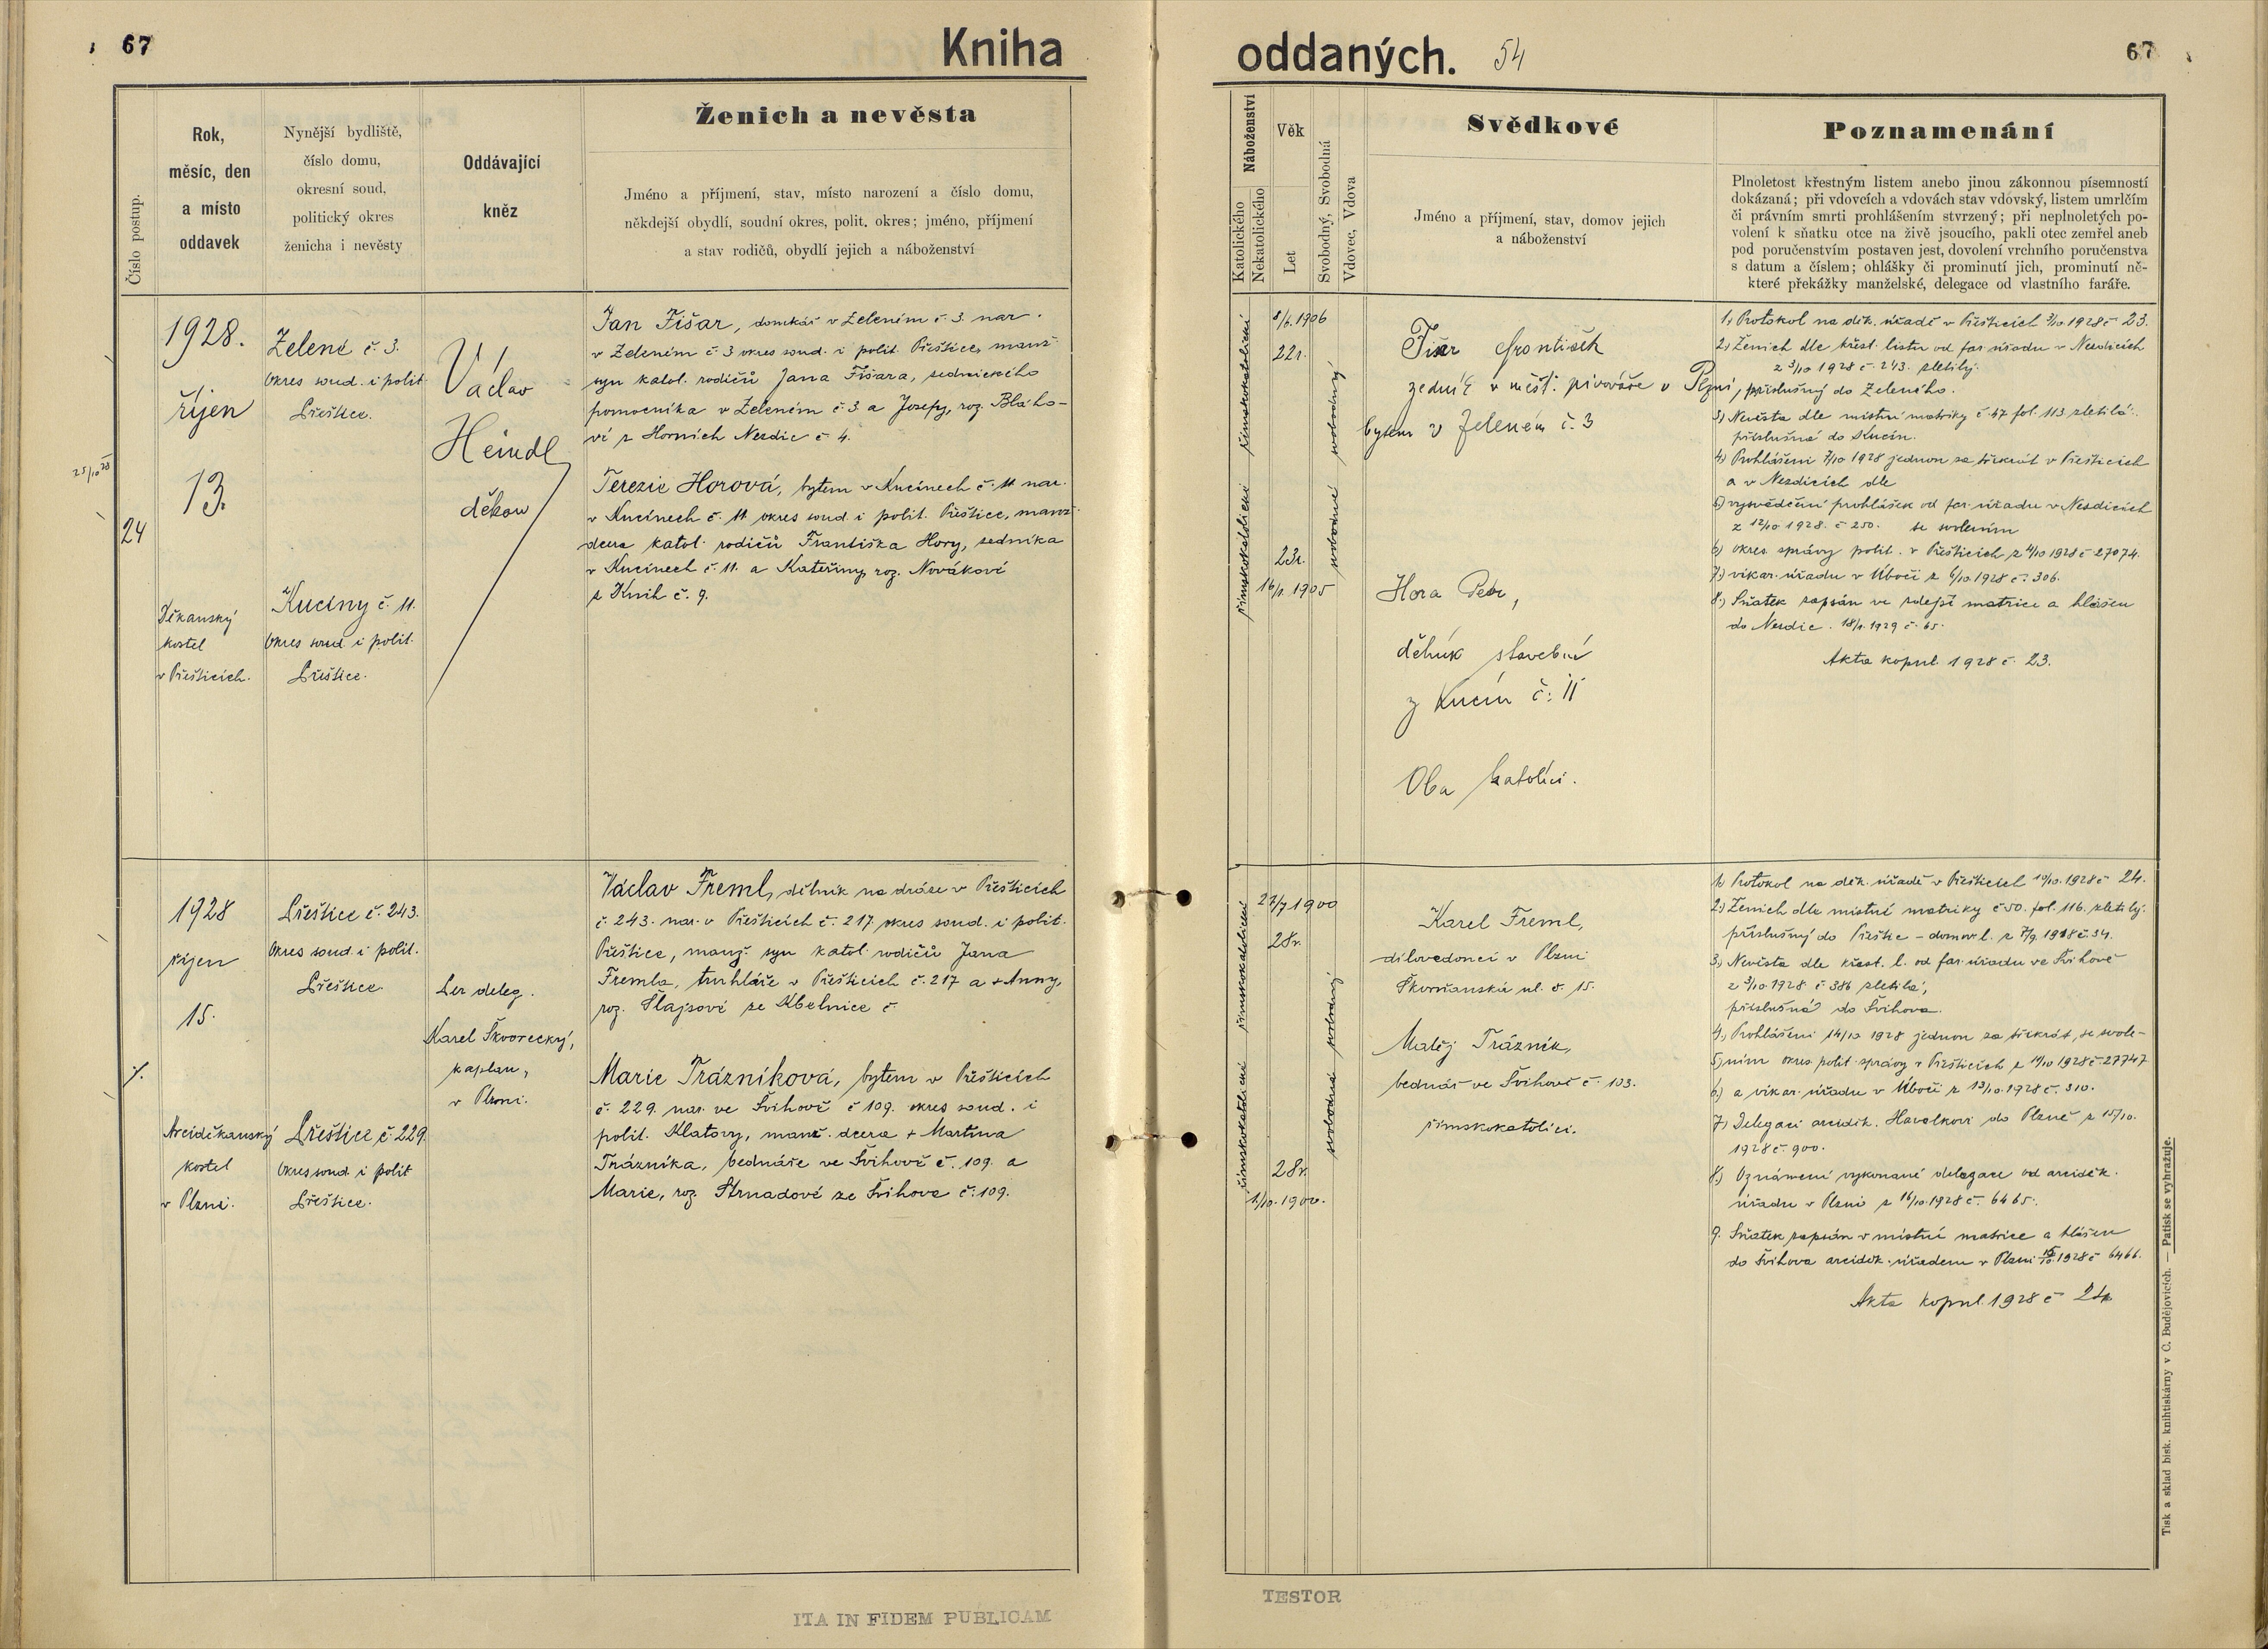 67
Kniha
Číslo postup.
Rok,
měsíc, den
a místo
oddavek
Nynější bydliště,
číslo domu,
okresní soud,
politický okres
ženicha i nevěsty
Oddávající
kněz
Ženich a nevěsta
Jméno a příjmení, stav, místo narození a číslo domu,
někdejší obydlí, soudní okres, polit. okres; jméno, příjmení
a stav rodičů, obydlí jejich a náboženství
25/10 28
24
1928.
říjen
13.
Děkanský
kostel
v Přešticích.
Zelené č. 3.
Okres soud. i polit
Přeštice.
Kucíny č. 11.
Okres soud i polit.
Přeštice.
Václav
Heindl
děkan
Jan Fišar, domkář v Zeleném č. 3. nar.
v Zeleném č. 3 okres soud. i polit. Přeštice, manž
syn katol. rodičů Jana Fišara, zednického
pomocníka v Zeleném č. 3. a Josefy, roz. Bláho-
vé z Horních Nezdic č 4.
Terezie Horová, bytem v Kucínech č. 11 nar.
v Kucínech č. 11 okres soud. i polit. Přeštice, manž.
dcera katol. rodičů Františka Hory, zedníka
v Kucínech č. 11. a Kateřiny, roz. Novákové
z Knih č. 9.
1928
říjen
15.
Arciděkanský
kostel
v Plzni.
Přeštice č. 243.
Okres soud. i polit.
Přeštice.
Přeštice č. 229.
Okres soud. i polit
Přeštice.
Per deleg.
Karel Škvorecký,
kaplan,
v Plzni.
Václav Freml, dělník na dráze v Přešticích
č. 243. nar. v Přešticích č. 217. okres soud. i polit.
Přeštice, manž. syn katol. rodičů Jana
Fremla, truhláře v Přešticích č. 217 a + Anny,
roz. Šlajsové ze Kbelnice č.
Marie Trázníková, bytem v Přešticích
č. 229. nar. ve Švihově č 109. okres soud. i
polit. Klatovy, manž. dcera + Martina
Trázníka, bednáře ve Švihově č. 109. a
Marie, roz. Strnadové ze Švihova č. 109.
ITA IN FIDEM PUBLICAM
oddaných.
54
67
Náboženství
Katolického
Nekatolického
Věk
Let
Svobodný, Svobodná
Vdovec, Vdova
Svědkové
Jméno a příjmení, stav, domov jejich
a náboženství
Poznamenání
Plnoletost křestným listem anebo jinou zákonnou písemností
dokázaná; při vdovcích a vdovách stav vdovský, listem umrlčím
či právním smrti prohlášením stvrzený; při neplnoletých po-
volení k sňatku otce na živě jsoucího, pakli otec zemřel aneb
pod poručenstvím postaven jest, dovolení vrchního poručenstva
s datum a číslem; ohlášky či prominutí jich, prominutí ně-
které překážky manželské, delegace od vlastního faráře.
římskokatolické římskokatolické
8/6. 1906
22r.
23r.
16/1. 1905
svobodná svobodný
Fišar František
zedník v měšť. pivováře v Plzni,
bytem v Zeleném č. 3
Hora Petr,
dělník stavební
z Kucín č. 11
Oba katolíci.
1) Protokol na děk. úřadě v Přešticích 3/10 1928 č 23.
2) Ženich dle křest. listu od far. úřadu v Nezdicích
z 3/10 1928 č. 243. zletilý.
příslušný do Zeleného.
3) Nevěsta dle místní matriky č 47 fol. 113 zletilá.
příslušná do Kucín.
4) Prohlášeni 7/10 1928 jednou za třikrát v Přešticích
a v Nezdicích dle
5) vysvědčení prohlášek od far. úřadu v Nezdicích
z 12/10 1928. č 250. se svolením
6) okres. správy polit. v Přešticích z 4/10 1928 č 27074.
7) vikar. úřadu v Úboči z 6/10. 1928 č. 306.
8.) Sňatek zapsán ve zdejší matrice a hlášen
do Nezdic. 18/1. 1929 č. 65.
Akta kopul. 1928 č. 23.
římskokatolické římskokatolické
27/7 1900
28r.
28r.
1/10. 1900.
svobodná svobodný
Karel Freml,
dílovedoucí v Plzni
Škorňanská ul. č. 15.
Matěj Trázník,
bednář ve Švihově č. 103.
římskokatolíci.
1) Protokol na děk. úřadě v Přešticích 10/10. 1928 č 24.
2) Ženich dle místní matriky č 50. fol. 116. zletilý.
příslušný do Přeštic – domov l. z 7/9. 1918 č. 34.
3.) Nevěsta dle křest. l. od far. úřadu ve Švihově
z 3/10. 1928. č 386 zletilá,
příslušná do Švihova.
4.) Prohlášeni 14/10 1928 jednou za třikrát, se svole-
5) ním okres. polit. správy v Přešticích z 11/10 1928 č 27747
6) a vikar. úřadu v Úboči z 13/10. 1928 č. 310.
7) Delegaci arciděk. Havelkovi do Plzně z 15/10.
1928 č. 900.
8.) Oznámení vykonané delegace od arciděk.
úřadu v Plzni z 16/10. 1928 č. 6465.
9. Sňatek zapsán v místní matrice a hlášen
do Švihova arciděk. úřadem v Plzni 1928 č 6466.
Akta kopul. 1928 č 24
TESTOR
Tisk a sklad bisk. knihtiskárny v Č. Budějovicích. — Patisk se vyhražuje.